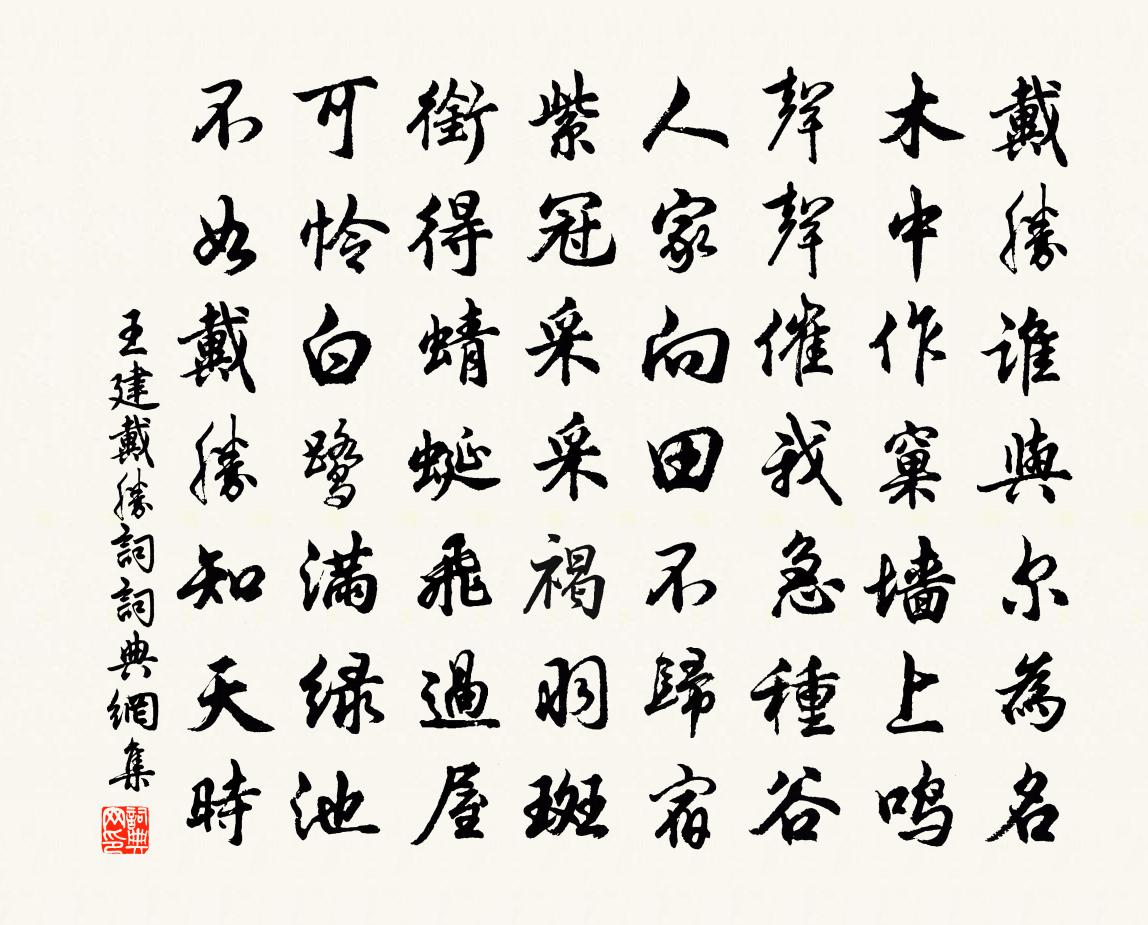 戴勝誰與尔為名
木中作窠墙上鸣
聲聲催我急種谷
人家向田不歸宿
紫冠采采褐羽斑
銜得蜻蜓飛過屋
可怜白鹭滿绿池
不如戴勝知天時
王建戴勝詞詞典網集
詞典
网印